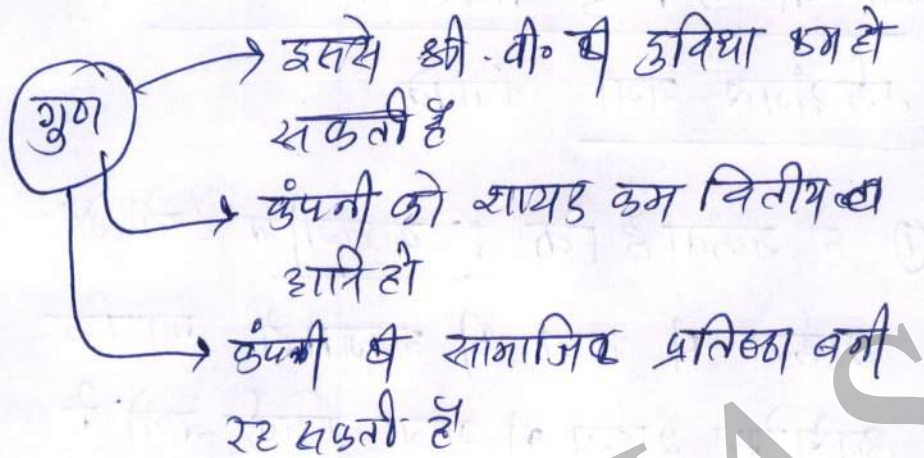 गुण
इससे श्री. वी० की दुविधा कम हो
सकती है
कंपनी को शायद कम वितीय
हानि हो
कंपनी की सामाजिक प्रतिष्ठा बनी
रह सकती है